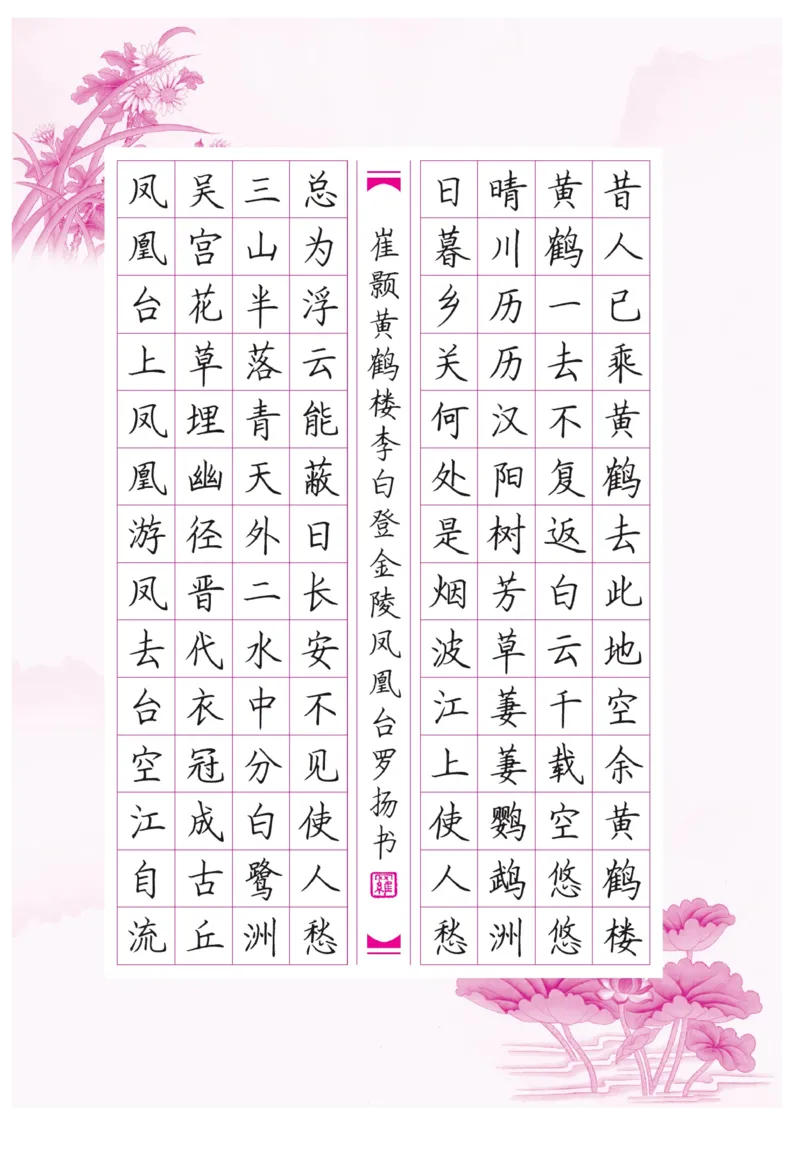 昔人已乘黄鹤去此地空余黄鹤楼
黄鹤一去不复返白云千载空悠悠
晴川历历汉阳树芳草萋萋鹦鹉洲
日暮乡关何处是烟波江上使人愁
凤凰台上凤凰游凤去台空江自流
吴宫花草埋幽径晋代衣冠成古丘
三山半落青天外二水中分白鹭洲
总为浮云能蔽日长安不见使人愁
崔颢黄鹤楼李白登金陵凤凰台罗扬书
羅